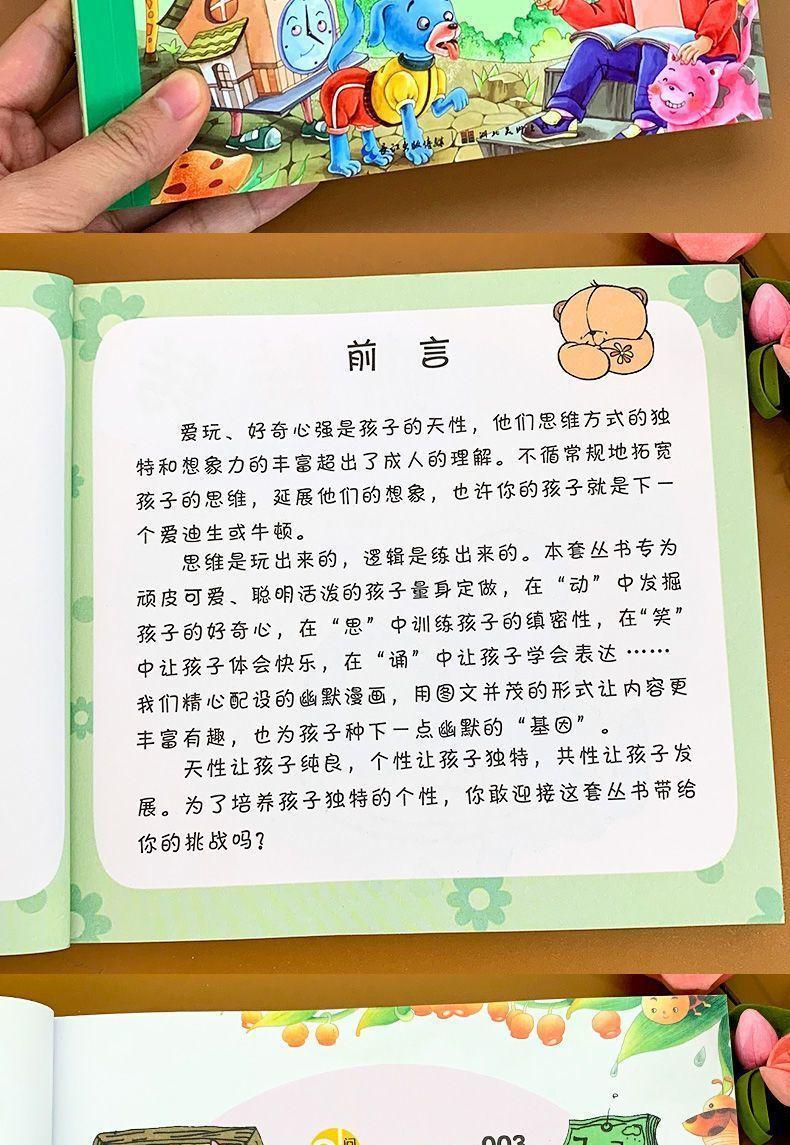 长江出版传媒 湖北美术
前言
爱玩、好奇心强是孩子的天性，他们思维方式的独
特和想象力的丰富超出了成人的理解。不循常规地拓宽
孩子的思维，延展他们的想象，也许你的孩子就是下一
个爱迪生或牛顿。
思维是玩出来的，逻辑是练出来的。本套丛书专为
顽皮可爱、聪明活泼的孩子量身定做，在“动”中发掘
孩子的好奇心，在“思”中训练孩子的缜密性，在“笑”
中让孩子体会快乐，在“诵”中让孩子学会表达……
我们精心配设的幽默漫画，用图文并茂的形式让内容更
丰富有趣，也为孩子种下一点幽默的“基因”。
天性让孩子纯良，个性让孩子独特，共性让孩子发
展。为了培养孩子独特的个性，你敢迎接这套丛书带给
你的挑战吗？
问
003